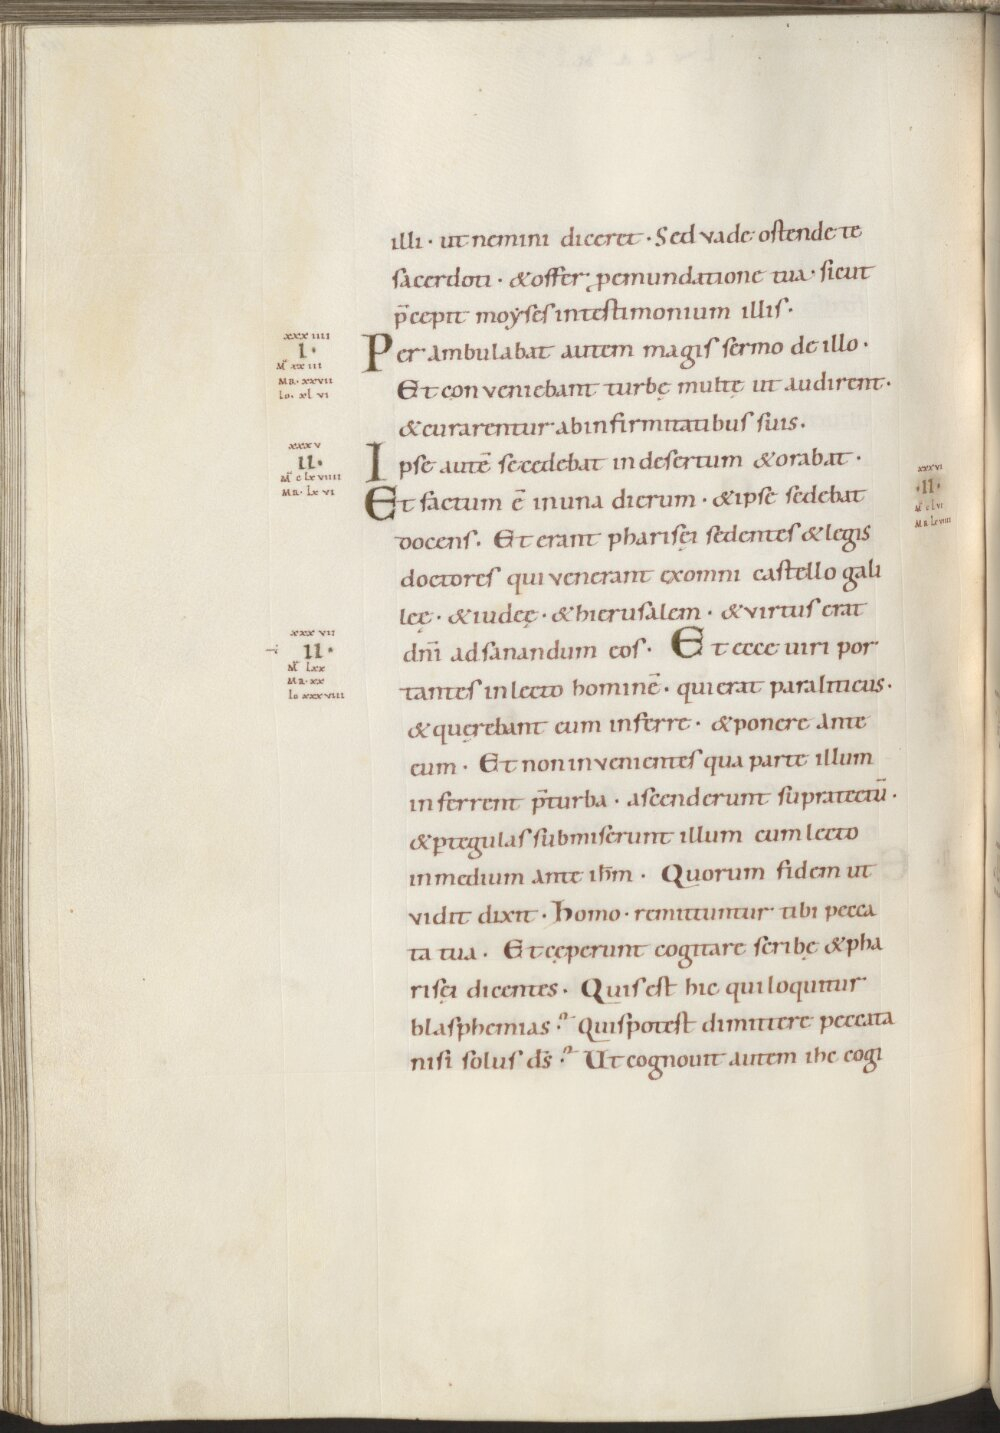 illi · ut nemini diceret · Sed vade ostende te
sacerdoti · & offer pemundatione tua · sicut
p̄cepit moẏses intestimonium illis ·
xxxiiii
I ·
Mͭ xxiii
Mr · xxvii
Io · xlvi
Per ambulabat autem magis sermo de illo ·
Et conveniebant turbę multę ut audirent ·
& curarentur abinfirmitatibus suis ·
xxxv
II ·
Mͭ clxviiii
Mr · lxvi
Ipse autē secedebat indesertum & orabat ·
Et factum ē inuna dierum · & ipse sedebat
xxxvi
· II ·
Mͭ clvi
Mr lxviiii
docens · Et erant pharisęi sedentes & legis
doctores qui venerant exomni castello gali
leę · & iudeę · & hierusalem · & virtus erat
xxxvii
II ·
Mͭ lxx
Mr · xx
Io xxxviii
dn̄i adsanandum eos · Et ecce uiri por
tantes inlecto hominē · qui erat paraliticus ·
& quęrebant eum inferre · & ponere ante
eum · Et non invenientes qua parte illum
inferrent p̄turba · ascenderunt supratectū ·
& ꝑtegulas submiserunt illum cum lecto
inmedium ante ih̄m · Quorum fidem ut
vidit dixit · Homo · remittuntur tibi pecca
ta tua · Et cęperunt cogitare scribę & pha
risęi dicentes · Quis est hic qui loquitur
blasphemias ·? Quis potest dimittere peccata
nisi solus ds̄ ·? Ut cognouit autem ihc cogi